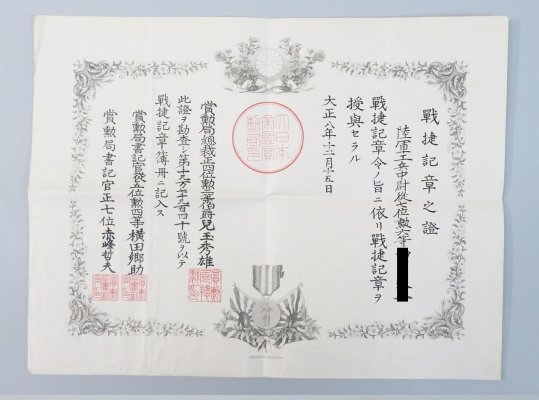 戰捷記章之證
陸軍工兵中尉從七位勲六等
戰捷記章令ノ旨ニ依リ戰捷記章ヲ
授與セラル
大正八年十二月十五日
大日本
帝國賞
勲局印
賞勲局總裁正四位勲二等伯爵兒玉秀雄
此證ヲ勘査シ第十六万二千九百四十號ヲ以テ
戰捷記章簿冊ニ記入ス
賞勲局書記官從五位勲四等横田郷助
賞勲局書記官正七位赤峰